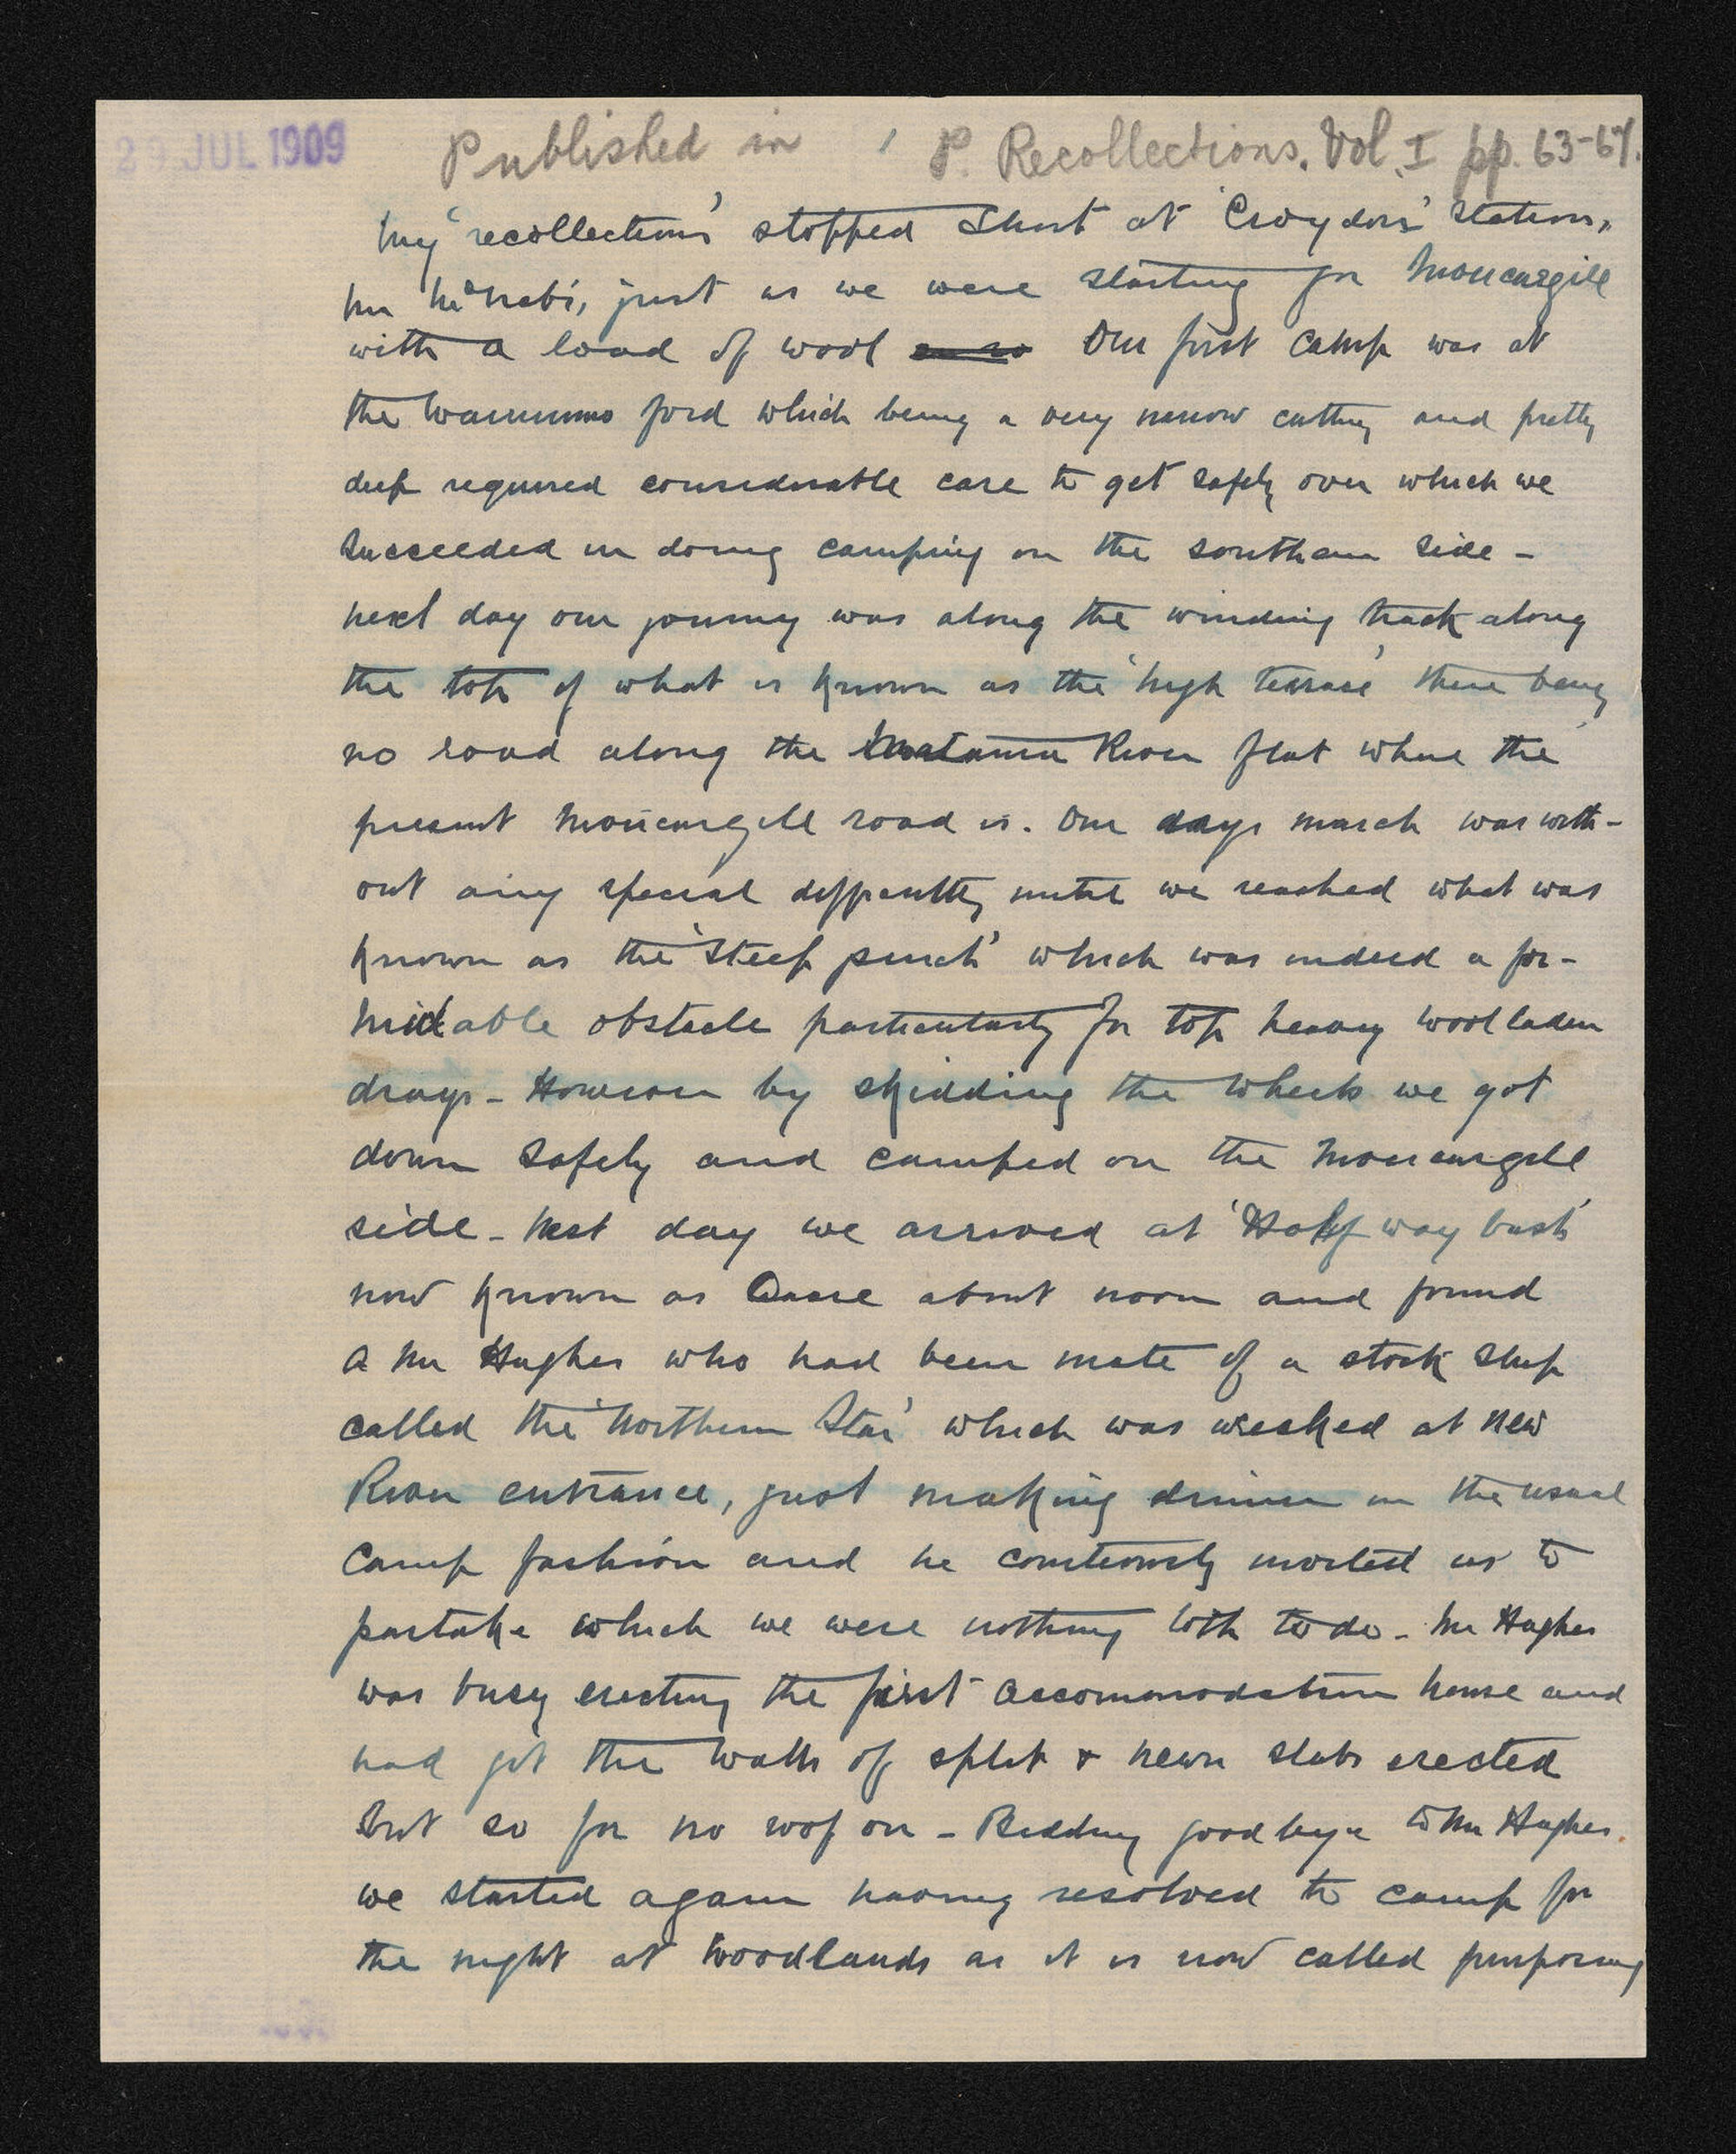 29 JUL 1909
Published in 1 P. Recollections. Vol. I pp. 63-67.
My 'recollections' stopped short at 'Croydon' Station,
Mr McNab's, just as we were starting for Invercargill
with a load of wool Our first camp was at
the Waimumu ford which being a very narrow cutting and pretty
deep required considerable care to get safely over which we
succeeded in doing camping on the southern side -
next day our journey was along the winding track along
the top of what is known as the 'high terrace' there being
no road along the Mataura River flat where the
present Invercargill road is. Our days march was with-
out any special difficulty until we reached what was
known as the 'Steep pinch' which was indeed a for-
midable obstacle particularly for top heavy wool laden
drays - However by skidding the wheels we got
down safely and camped on the Invercargill
side - Next day we arrived at 'Half way bush'
now known as Dacre about noon and found
a Mr Hughes who had been mate of a stock ship
called the 'Northern Star' which was wrecked at New
River entrance, just making dinner in the usual
camp fashion and he courteously invited us to
partake which we were nothing loth to do - Mr Hughes
was busy erecting the first accommodation house and
had got the walls of split & hewn slabs erected
but so far no roof on - Bidding good bye to Mr Hughes.
we started again having resolved to camp for
the night at Woodlands as it is now called purposing